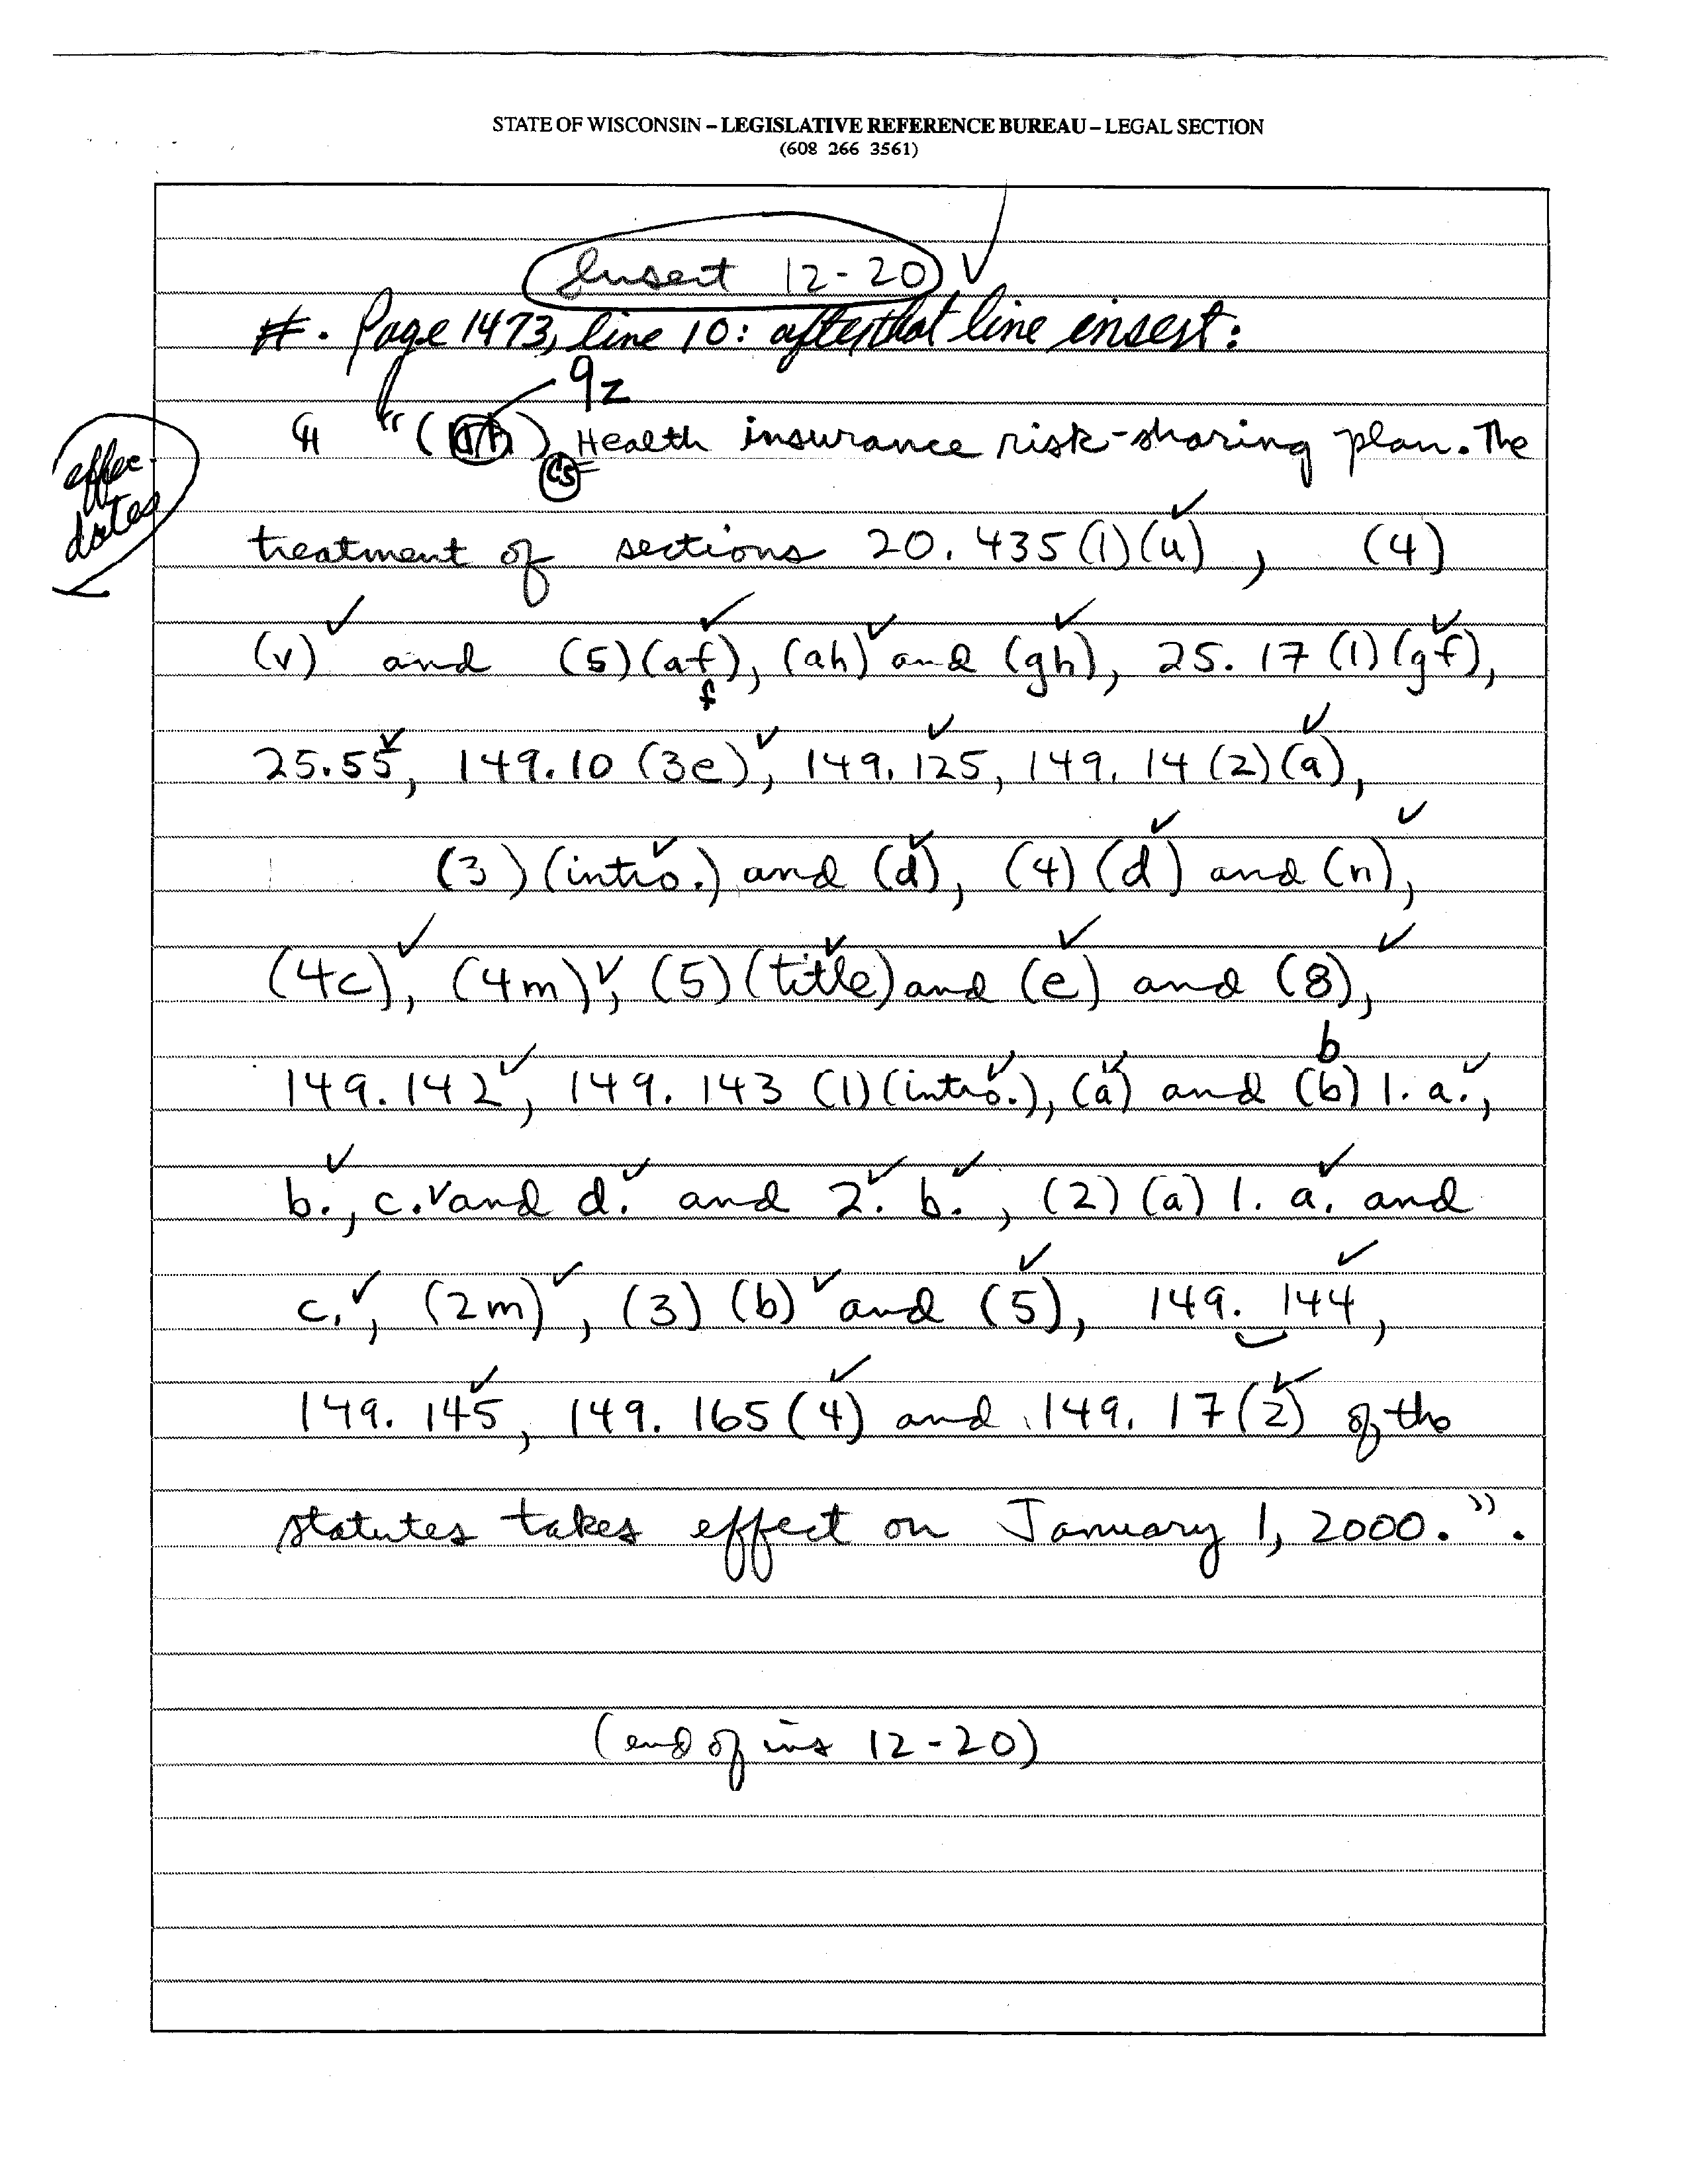 STATE OF WISCONSIN – LEGISLATIVE REFERENCE BUREAU – LEGAL SECTION
(608 266 3561)
Insert 12-20
#. Page 1473, line 10: after that line insert:
9z
¶ "( ) Health insurance risk-sharing plan. The
CS
effec.
dates
treatment of sections 20.435(1)(u), (4)
(v) and (5)(af), (ah) and (gh), 25.17(1)(gf),
f
25.55, 149.10(3e), 149.125, 149.14(2)(a),
(3)(intro.) and (d), (4)(d) and (n),
(4c), (4m), (5)(title) and (e) and (8),
b
149.142, 149.143 (1)(intro.), (a) and (b) 1. a.,
b., c. and d. and 2. b., (2)(a) 1. a. and
c., (2m), (3)(b) and (5), 149.144,
149.145, 149.165(4) and 149.17(2) of the
statutes takes effect on January 1, 2000.".
(end of ins 12-20)